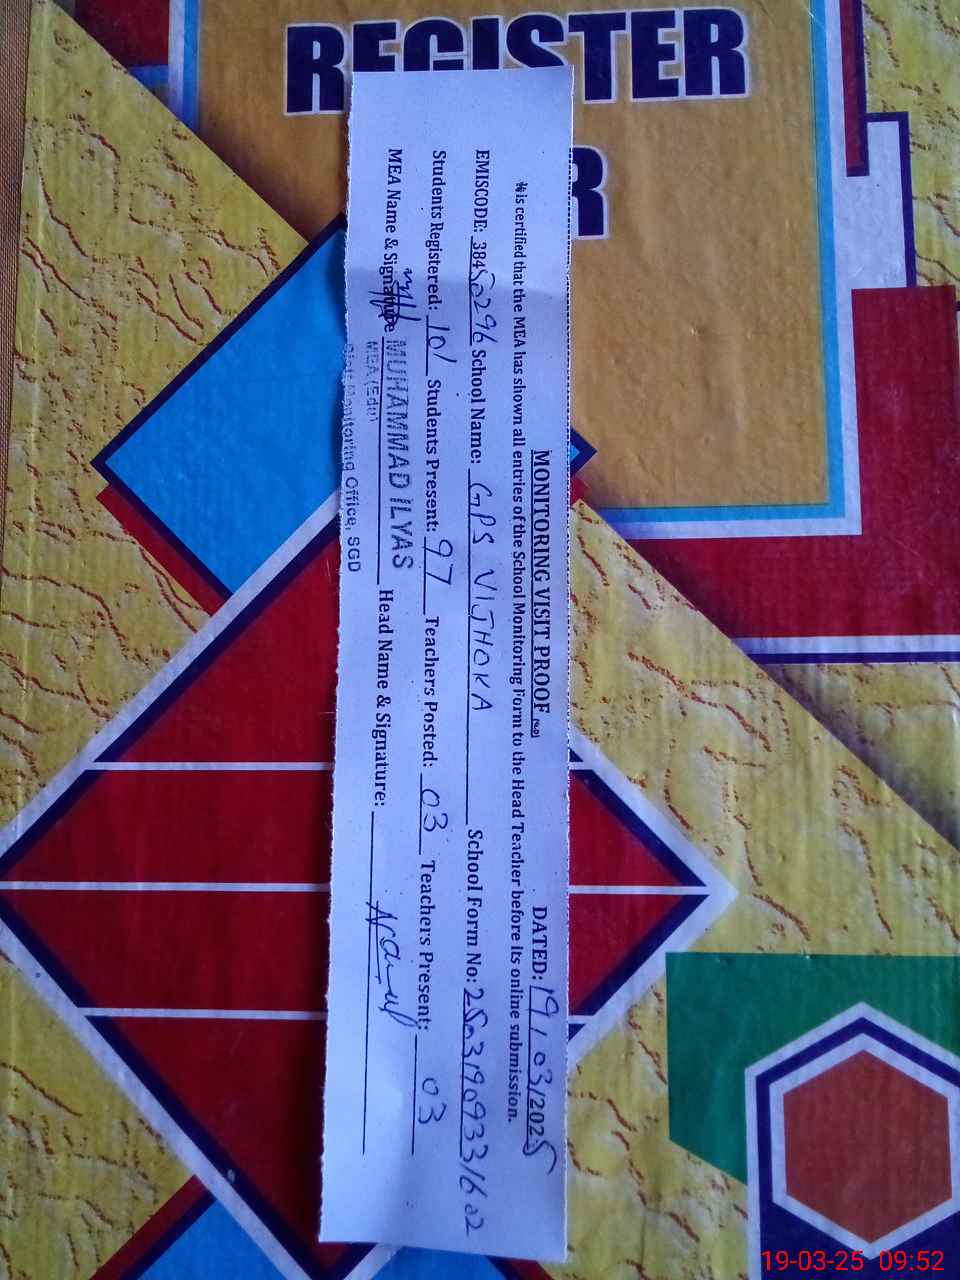 REGISTER
R
MONITORING VISIT PROOF DATED: 19/03/2025
is certified that the MEA has shown all entries of the School Monitoring Form to the Head Teacher before its online submission.
EMISCODE: 38450296 School Name: GPS VIJHOKA School Form No: 25031909331602
Students Registered: 101 Students Present: 97 Teachers Posted: 03 Teachers Present: 03
MEA Name & Signature MUHAMMAD ILYAS Head Name & Signature:
MEA (Edu)
Monitoring Office, SGD
19-03-25 09:52